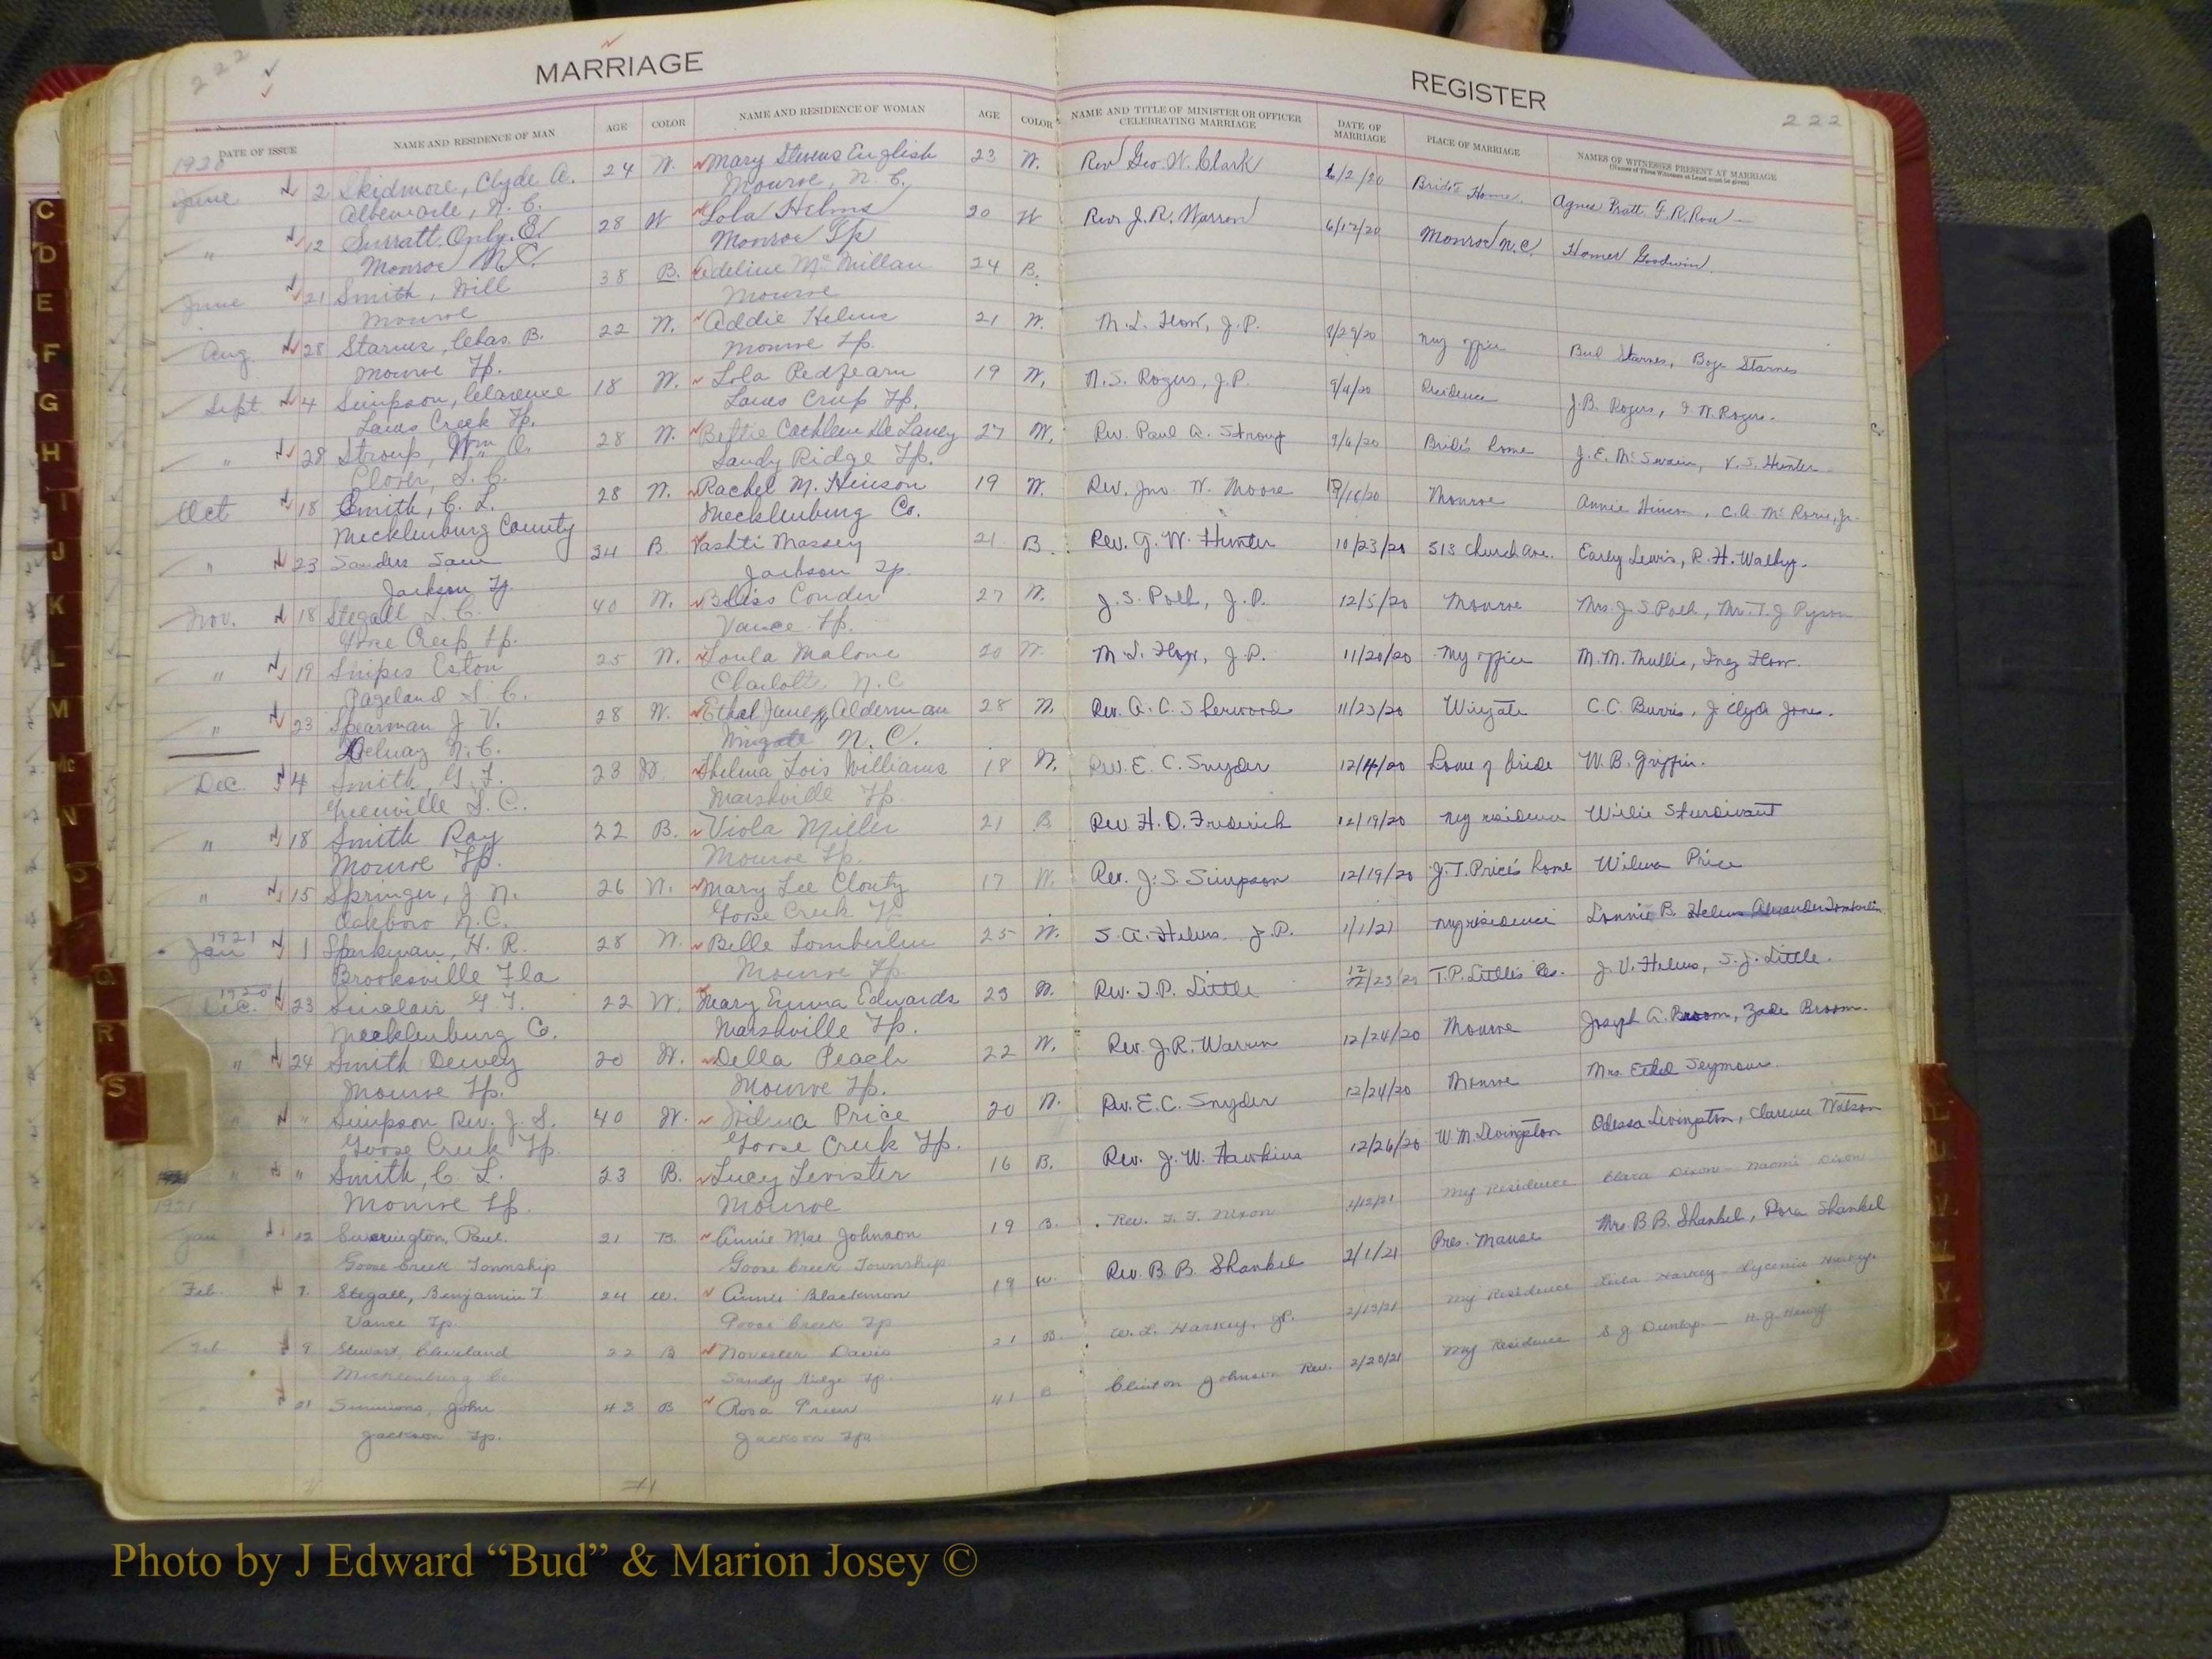 222
MARRIAGE
REGISTER
222
DATE OF ISSUE NAME AND RESIDENCE OF MAN AGE COLOR NAME AND RESIDENCE OF WOMAN AGE COLOR NAME AND TITLE OF MINISTER OR OFFICER CELEBRATING MARRIAGE DATE OF MARRIAGE PLACE OF MARRIAGE NAMES OF WITNESSES PRESENT AT MARRIAGE
1920
June 2 Skidmore, Clyde A. 24 W. Mary Stevens English 23 W. Rev Geo W. Clark 6/2/20 Bride's Home. Agnes Pratt F.R. Rose
Albemarle, N. C. Monroe, N. C.
" 12 Surratt. Only. E. 28 W Lola Helms 20 W Rev J. R. Warren 6/12/20 Monroe N.C. Homer Goodwin
Monroe N.C. Monroe Tp
June 21 Smith, Will 38 B. Adeline McMillan 24 B.
Monroe Monroe
Aug. 28 Starnes, Chas. B. 22 W. Addie Helms 21 W. M. L. Flow, J.P. 8/29/20 my office Bud Starnes, Boge Starnes
Monroe Tp. Monroe Tp.
Sept 4 Simpson, Clarence 18 W. Lola Redfearn 19 W. N. S. Rogers, J.P. 9/4/20 Residence J.B. Rogers, F. W. Rogers.
Lanes Creek Tp. Lanes Creek Tp.
" 28 Stroup, Wm. O. 28 W. Bettie Cathleen De Laney 27 W. Rev. Paul A. Stroup Bride's home J. E. McSwain, V. S. Hunter
Clover, S. C. Sandy Ridge Tp.
Oct 18 Smith, C. L. 28 W. Rachel M. Hinson 19 W. Rev. Jno W. Moore Monroe Annie Hinson, C. A. McRorie, Jr.
Mecklenburg County Mecklenburg Co.
" 23 Sanders Sam 24 B Vashti Massey 21 B. Rev. G. W. Hunter 10/23/20 513 Church Ave. Early Lewis, R. H. Walkup.
Jackson Tp. Jackson Tp.
Nov. 18 Stegall L. C. 40 W. Bliss Conder 27 W. J. S. Polk, J.P. 12/5/20 Monroe Mrs. J. S. Polk, Mr. T. J. Pyron
Goose Creek Tp. Vance Tp.
" 19 Snipes Eston 25 W. Loula Malone 20 W. M. L. Flow, J.P. 11/20/20 My office M. M. Mullis, Inez Flow.
Pageland S. C. Charlotte N.C
" 23 Spearman J. V. 28 W. Ethel June Alderman 28 W. Rev. A. C. Sherwood 11/23/20 Wingate C.C. Burris, J. Clyde Jones.
Delway N.C. Wingate N.C.
Dec. 4 Smith, G. F. 23 W. Thelma Lois Williams 18 W. Rev. E. C. Snyder 12/4/20 Home of bride W. B. Griffin.
Greenville S. C. Marshville Tp
" 18 Smith Roy 22 B. Viola Miller 21 B Rev. H. D. Frederick 12/19/20 my residence Willie Sturdivant
Monroe Tp. Monroe Tp.
" 15 Springer, J. N. 26 W. Mary Lee Clonty 17 W. Rev. J. S. Simpson 12/19/20 J. T. Price's home Wilma Price
Oakboro N.C. Goose Creek Tp
1921
Jan 1 Sparkman, H. R. 28 W. Belle Tomberlin 25 W. S. A. Helms J.P. 1/1/21 my residence Lonnie B. Helms Alexander Tomberlin
Brooksville Fla Monroe Tp.
1920
Dec. 23 Sinclair G. T. 22 W. Mary Emma Edwards 23 W. Rev. J. P. Little 12/23/20 T. P. Little's Res. J. V. Helms, S. J. Little.
Mecklenburg Co. Marshville Tp.
" 24 Smith Dewey 20 W. Della Peach 22 W. Rev. J. R. Warren 12/24/20 Monroe Joseph A. Broom, Zade Broom.
Monroe Tp. Monroe Tp.
" " Simpson Rev. J. S. 40 W. Wilma Price 20 W. Rev. E. C. Snyder 12/24/20 Monroe Mrs. Ethel Seymour.
Goose Creek Tp. Goose Creek Tp.
" " Smith, C. L. 23 B. Lucy Levister 16 B. Rev. J. W. Hawkins 12/26/20 W. M. Livingston Odessa Livingston, Clarence Watson
Monroe Tp. Monroe
1921
Jan 12 Paul. 21 B. Annie Mae Johnson 19 B. Rev. F. F. Nixon 1/12/21 My Residence Clara Dixon - Naomi Dixon
Goose Creek Township Goose Creek Township
Feb. 7. Stegall, Benjamin T 24 W. Annie Blackmon 19 W. Rev. B. B. Shankel 2/1/21 Pres. Manse Mrs. B B. Shankel, Dora Shankel
Vance Tp. Goose Creek Tp
Feb 9 Stewart, Cleveland 22 B Novester Davis 21 B. W. L. Harkey, JP. 2/13/21 My Residence Leila Harkey - Lycenia Harkey.
Mecklenburg Co Sandy Ridge Tp.
" 21 Simmons, John 43 B Rosa 41 B Clinton Johnson Rev. 2/20/21 My Residence S. J. Dunlap - H. J. Henry
Jackson Tp. Jackson Tp
C
D
E
F
G
H
I
J
K
L
M
Mc
N
O
Q
R
S
Photo by J Edward “Bud” & Marion Josey ©